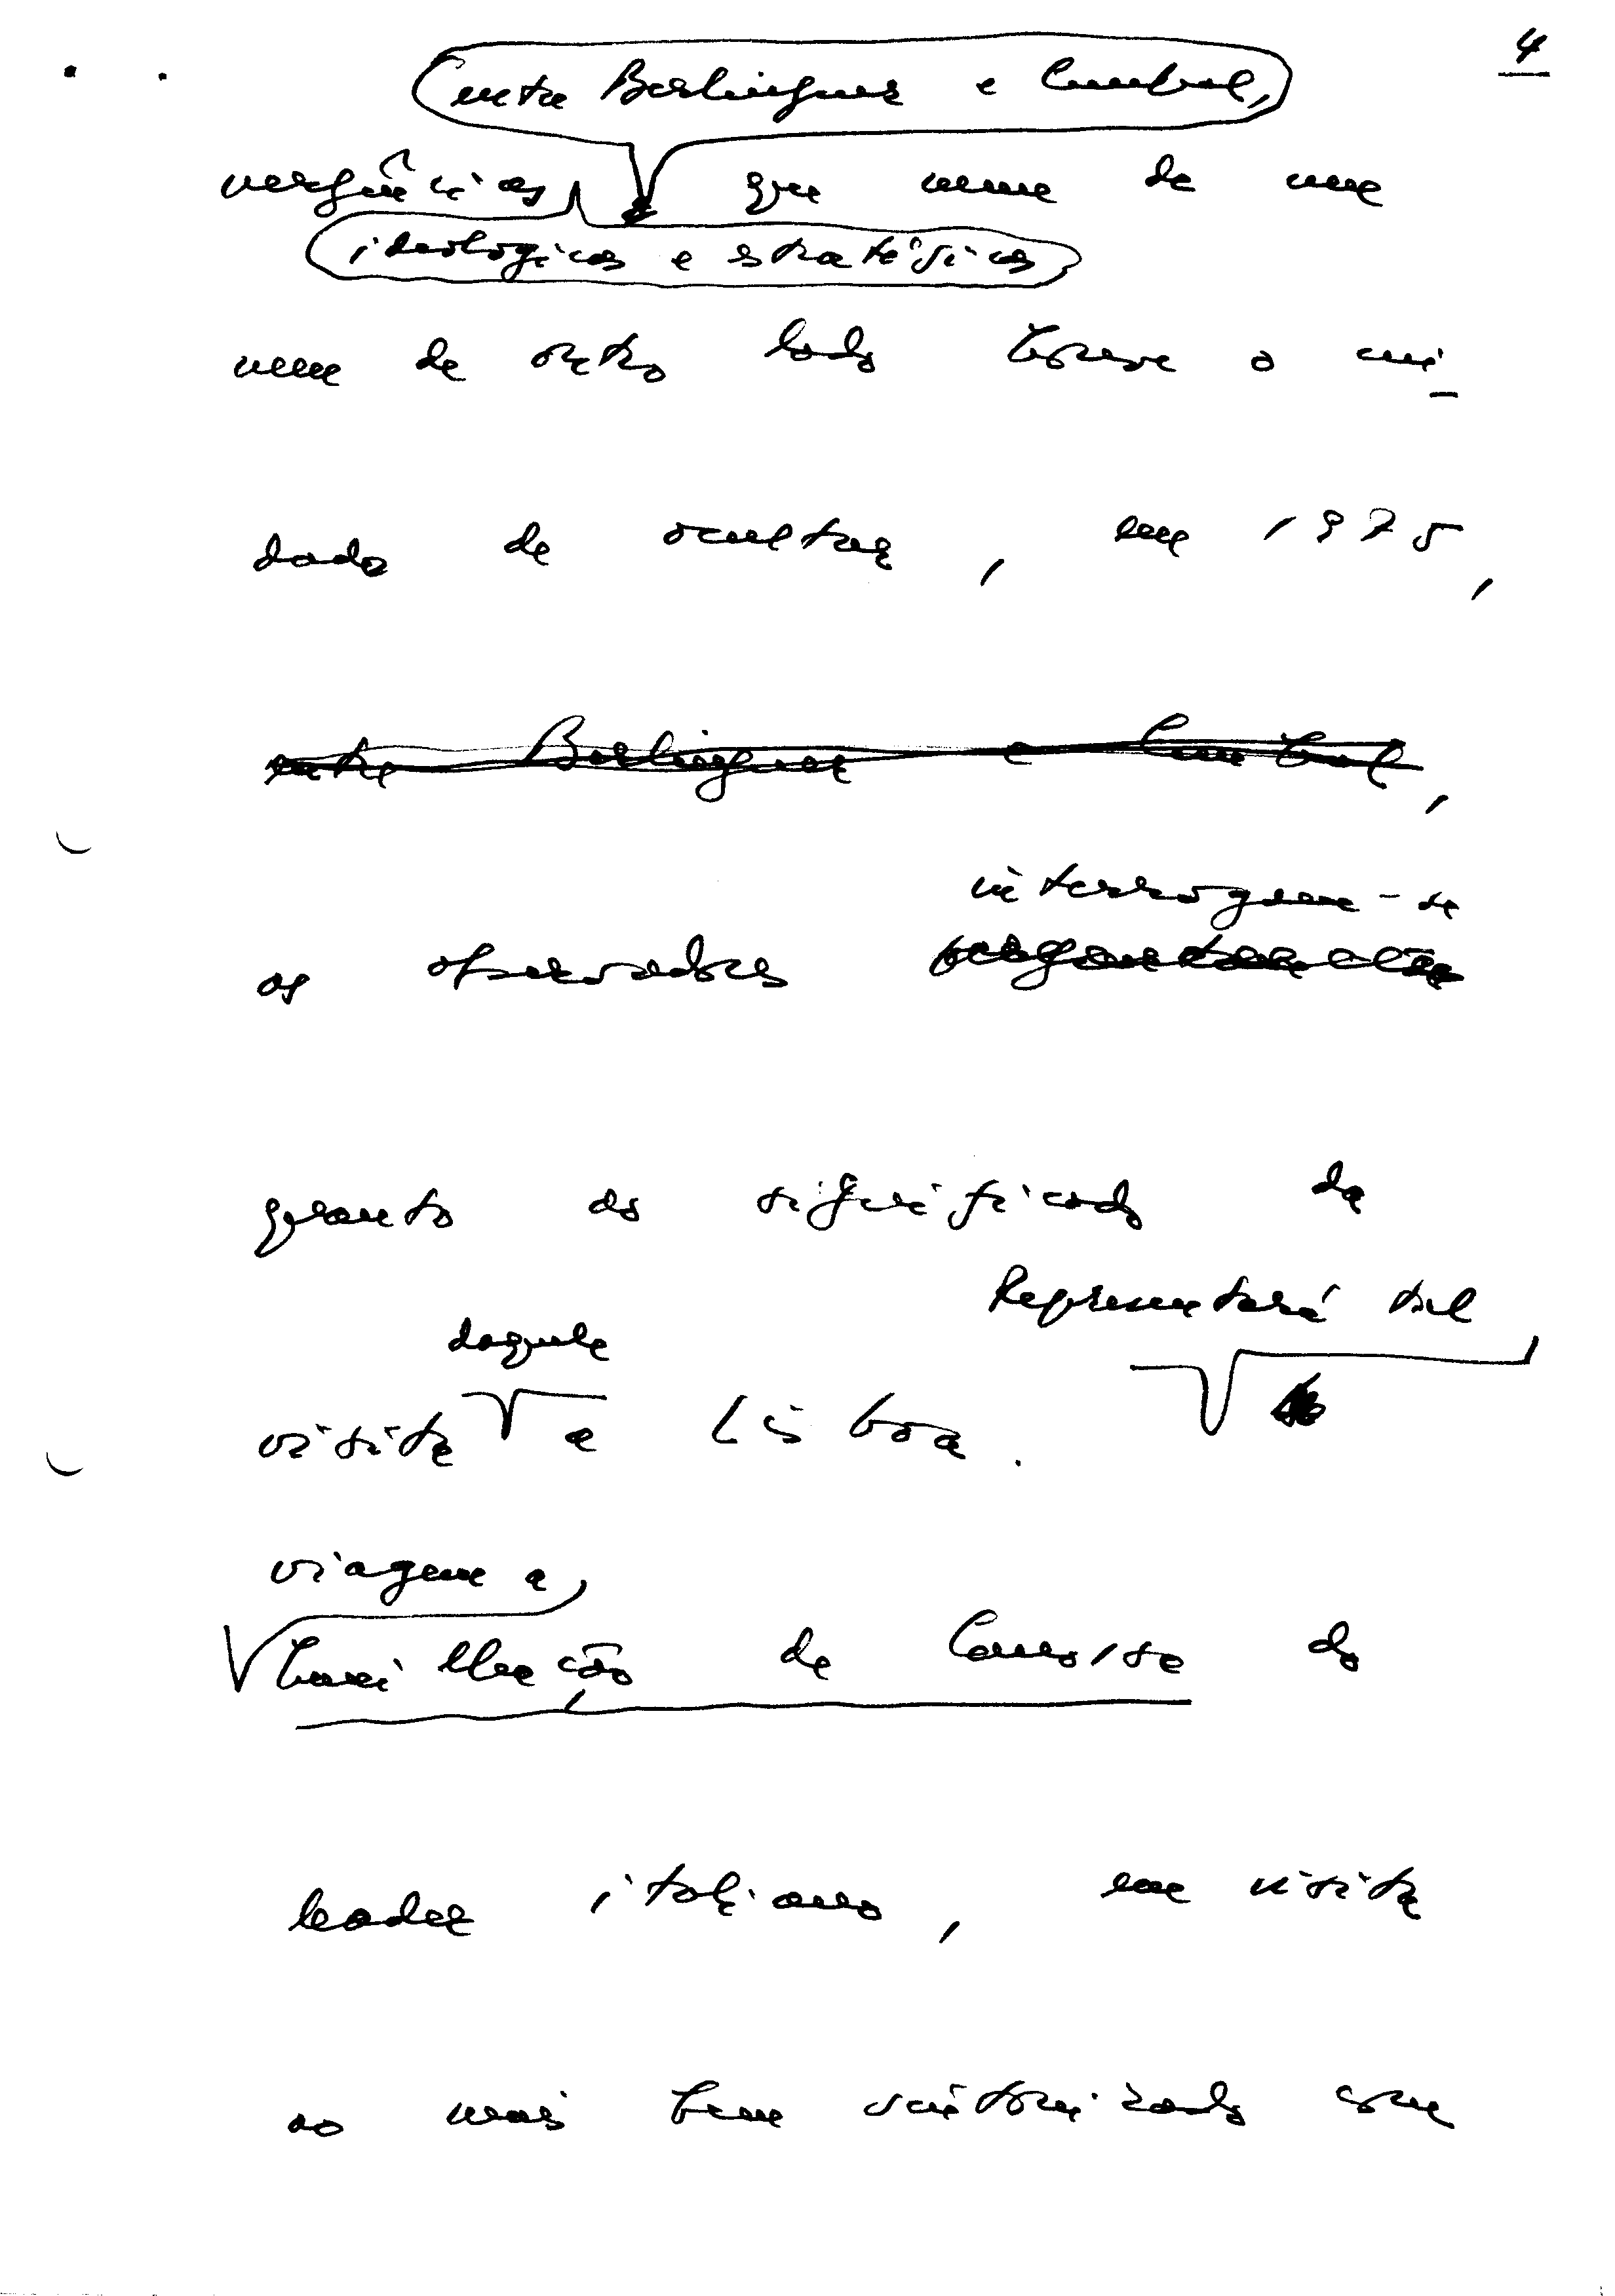 4
entre Berlinguer e Cunhal,
vergências que nem de um
ideológicas e estratégicas
nem de outro lado houve o cui-
dado de ocultar, em 1975,
entre Berlinguer e Cunhal,
interrogam-se
os observadores
quanto ao significado da
Representará tal
daquele
visita a Lisboa.
viagem a
humilhação de Canossa do
leader italiano, em visita
ao mais bem com